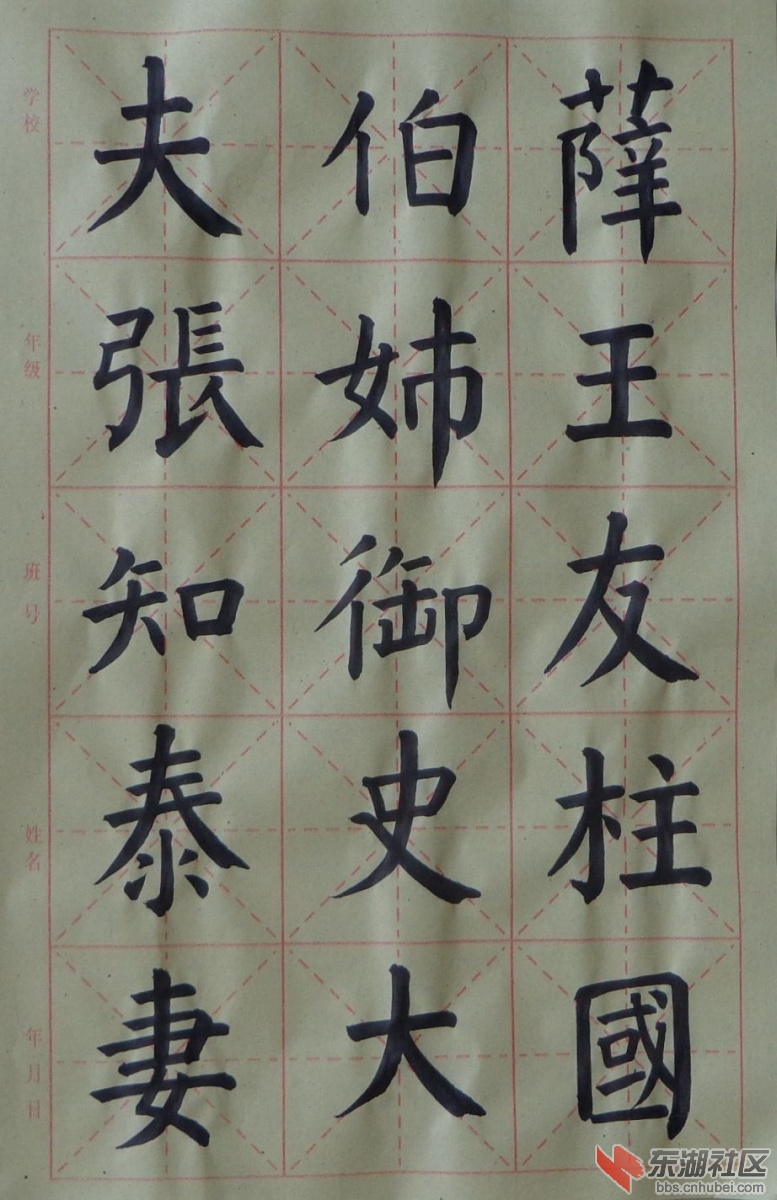 薛王友柱國
伯姉御史大
夫張知泰妻
学校
年级
班号
姓名
年月日
东湖社区
bbs.cnhubei.com